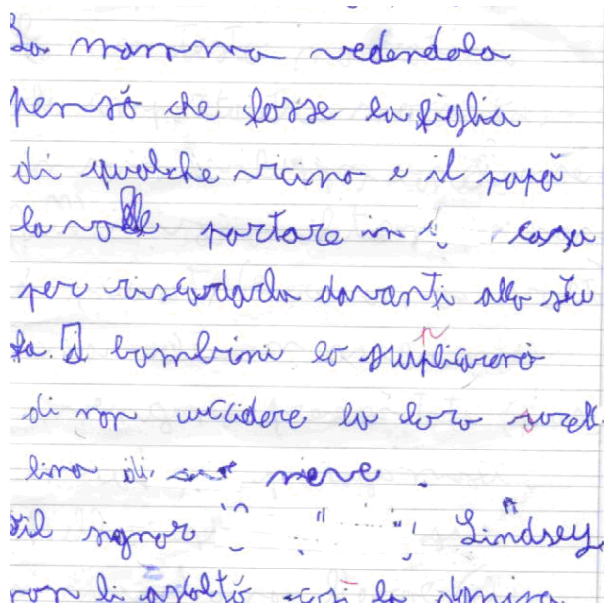 La mamma vedendola
pensò che fosse la figlia
di qualche vicino e il papà
la volle portare in casa
per riscardarla davanti alla stu
fa. I bambini lo supliarono
di non uccidere la loro sorel-
lina di neve.
il signor Lindsey
non li ascoltò così la